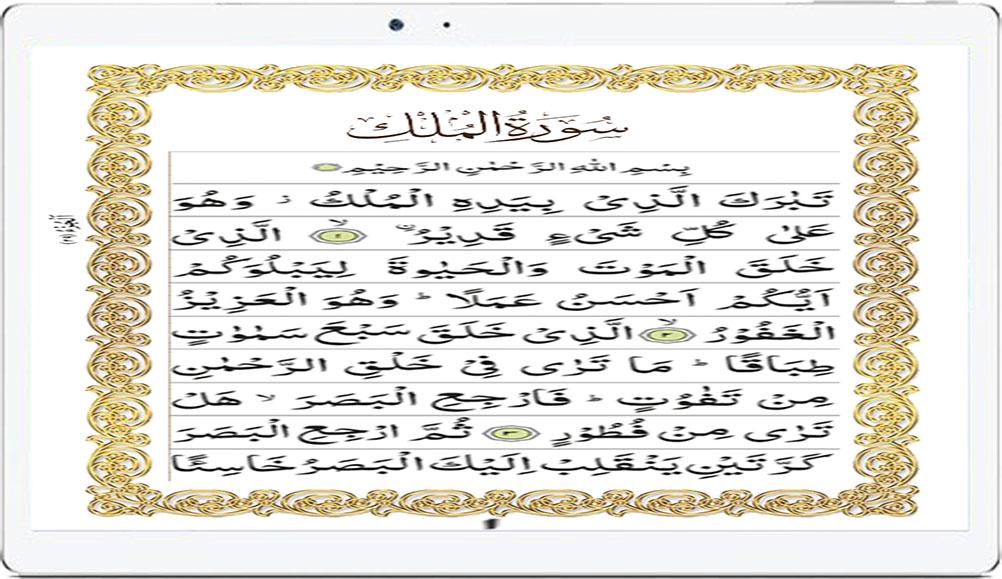 سُوْرَةُ الْمُلْكِ
بِسْمِ اللهِ الرَّحْمٰنِ الرَّحِيْمِ
تَبٰرَكَ الَّذِیْ بِیَدِهِ الْمُلْكُ ؗ وَهُوَ
عَلٰی كُلِّ شَیْءٍ قَدِیْرُ ۙ الَّذِیْ
خَلَقَ الْمَوْتَ وَالْحَیٰوةَ لِیَبْلُوَكُمْ
اَیُّكُمْ اَحْسَنُ عَمَلًا ؕ وَهُوَ الْعَزِیْزُ
الْغَفُوْرُ ۙ الَّذِیْ خَلَقَ سَبْعَ سَمٰوٰتٍ
طِبَاقًا ؕ مَا تَرٰی فِیْ خَلْقِ الرَّحْمٰنِ
مِنْ تَفٰوُتٍ ؕ فَارْجِعِ الْبَصَرَ ۙ هَلْ
تَرٰی مِنْ فُطُوْرٍ ثُمَّ ارْجِعِ الْبَصَرَ
كَرَّتَیْنِ یَنْقَلِبْ اِلَیْكَ الْبَصَرُ خَاسِئًا